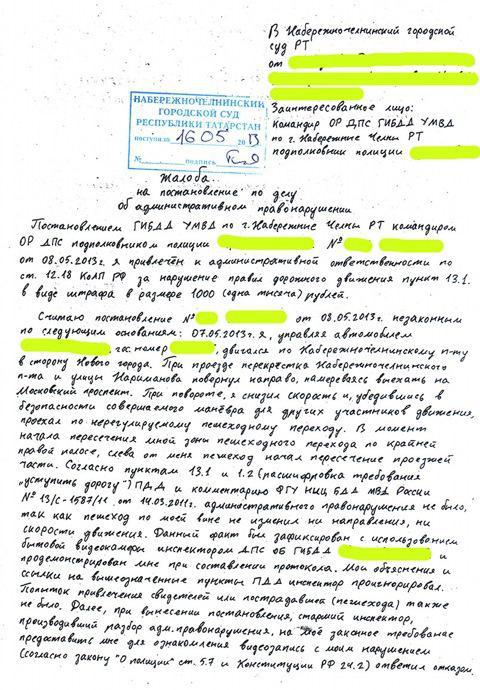 В Набережночелнинский городской
суд РТ
от
Заинтересованное лицо:
Командир ОР ДПС ГИБДД УМВД
по г. Набережные Челны РТ
подполковник полиции
НАБЕРЕЖНОЧЕЛНИНСКИЙ
ГОРОДСКОЙ СУД
РЕСПУБЛИКИ ТАТАРСТАН
поступило 16 05 2013
№ подпись
Жалоба
на постановление по делу
об административном правонарушении
Постановлением ГИБДД УМВД по г. Набережные Челны РТ командиром
ОР ДПС подполковником полиции №
от 08.05.2013г. я привлечён к административной ответственности по
ст. 12.18 КоАП РФ за нарушение правил дорожного движения пункт 13.1.
в виде штрафа в размере 1000 (одна тысяча) рублей.
Считаю постановление № от 08.05.2013г. незаконным
по следующим основаниям: 07.05.2013г. я, управляя автомобилем
, гос. номер , двигался по Набережночелнинскому п-ту
в сторону Нового города. При проезде перекрёстка Набережночелнинского
п-та и улицы Нариманова повернул направо, намереваясь выехать на
Московский проспект. При повороте, я снизил скорость и, убедившись в
безопасности совершаемого манёвра для других участников движения,
проехал по нерегулируемому пешеходному переходу. В момент
начала пересечения мной зоны пешеходного перехода по крайней
правой полосе, слева от меня пешеход начал пересечение проезжей
части. Согласно пунктам 13.1 и 1.2 (расшифровка требования
"уступить дорогу") ПДД и комментарию ФГУ НИЦ БДД МВД России
№ 13/С-1587/11 от 14.03.2011г. административного правонарушения не было,
так как пешеход по моей вине не изменил ни направления, ни
скорости движения. Данный факт был зафиксирован с использованием
бытовой видеокамеры инспектором ДПС ОБ ГИБДД и
продемонстрирован мне при составлении протокола. Мои объяснения и
ссылки на вышеозначенные пункты ПДД инспектор проигнорировал.
Попыток привлечения свидетелей или пострадавшей (пешехода) также
не было. Далее, при вынесении постановления, старший инспектор,
производивший разбор адм. правонарушения, на моё законное требование
предоставить мне для ознакомления видеозапись с моим нарушением
(согласно закону "О полиции" ст. 5.7 и Конституции РФ 24.2) ответил отказом.